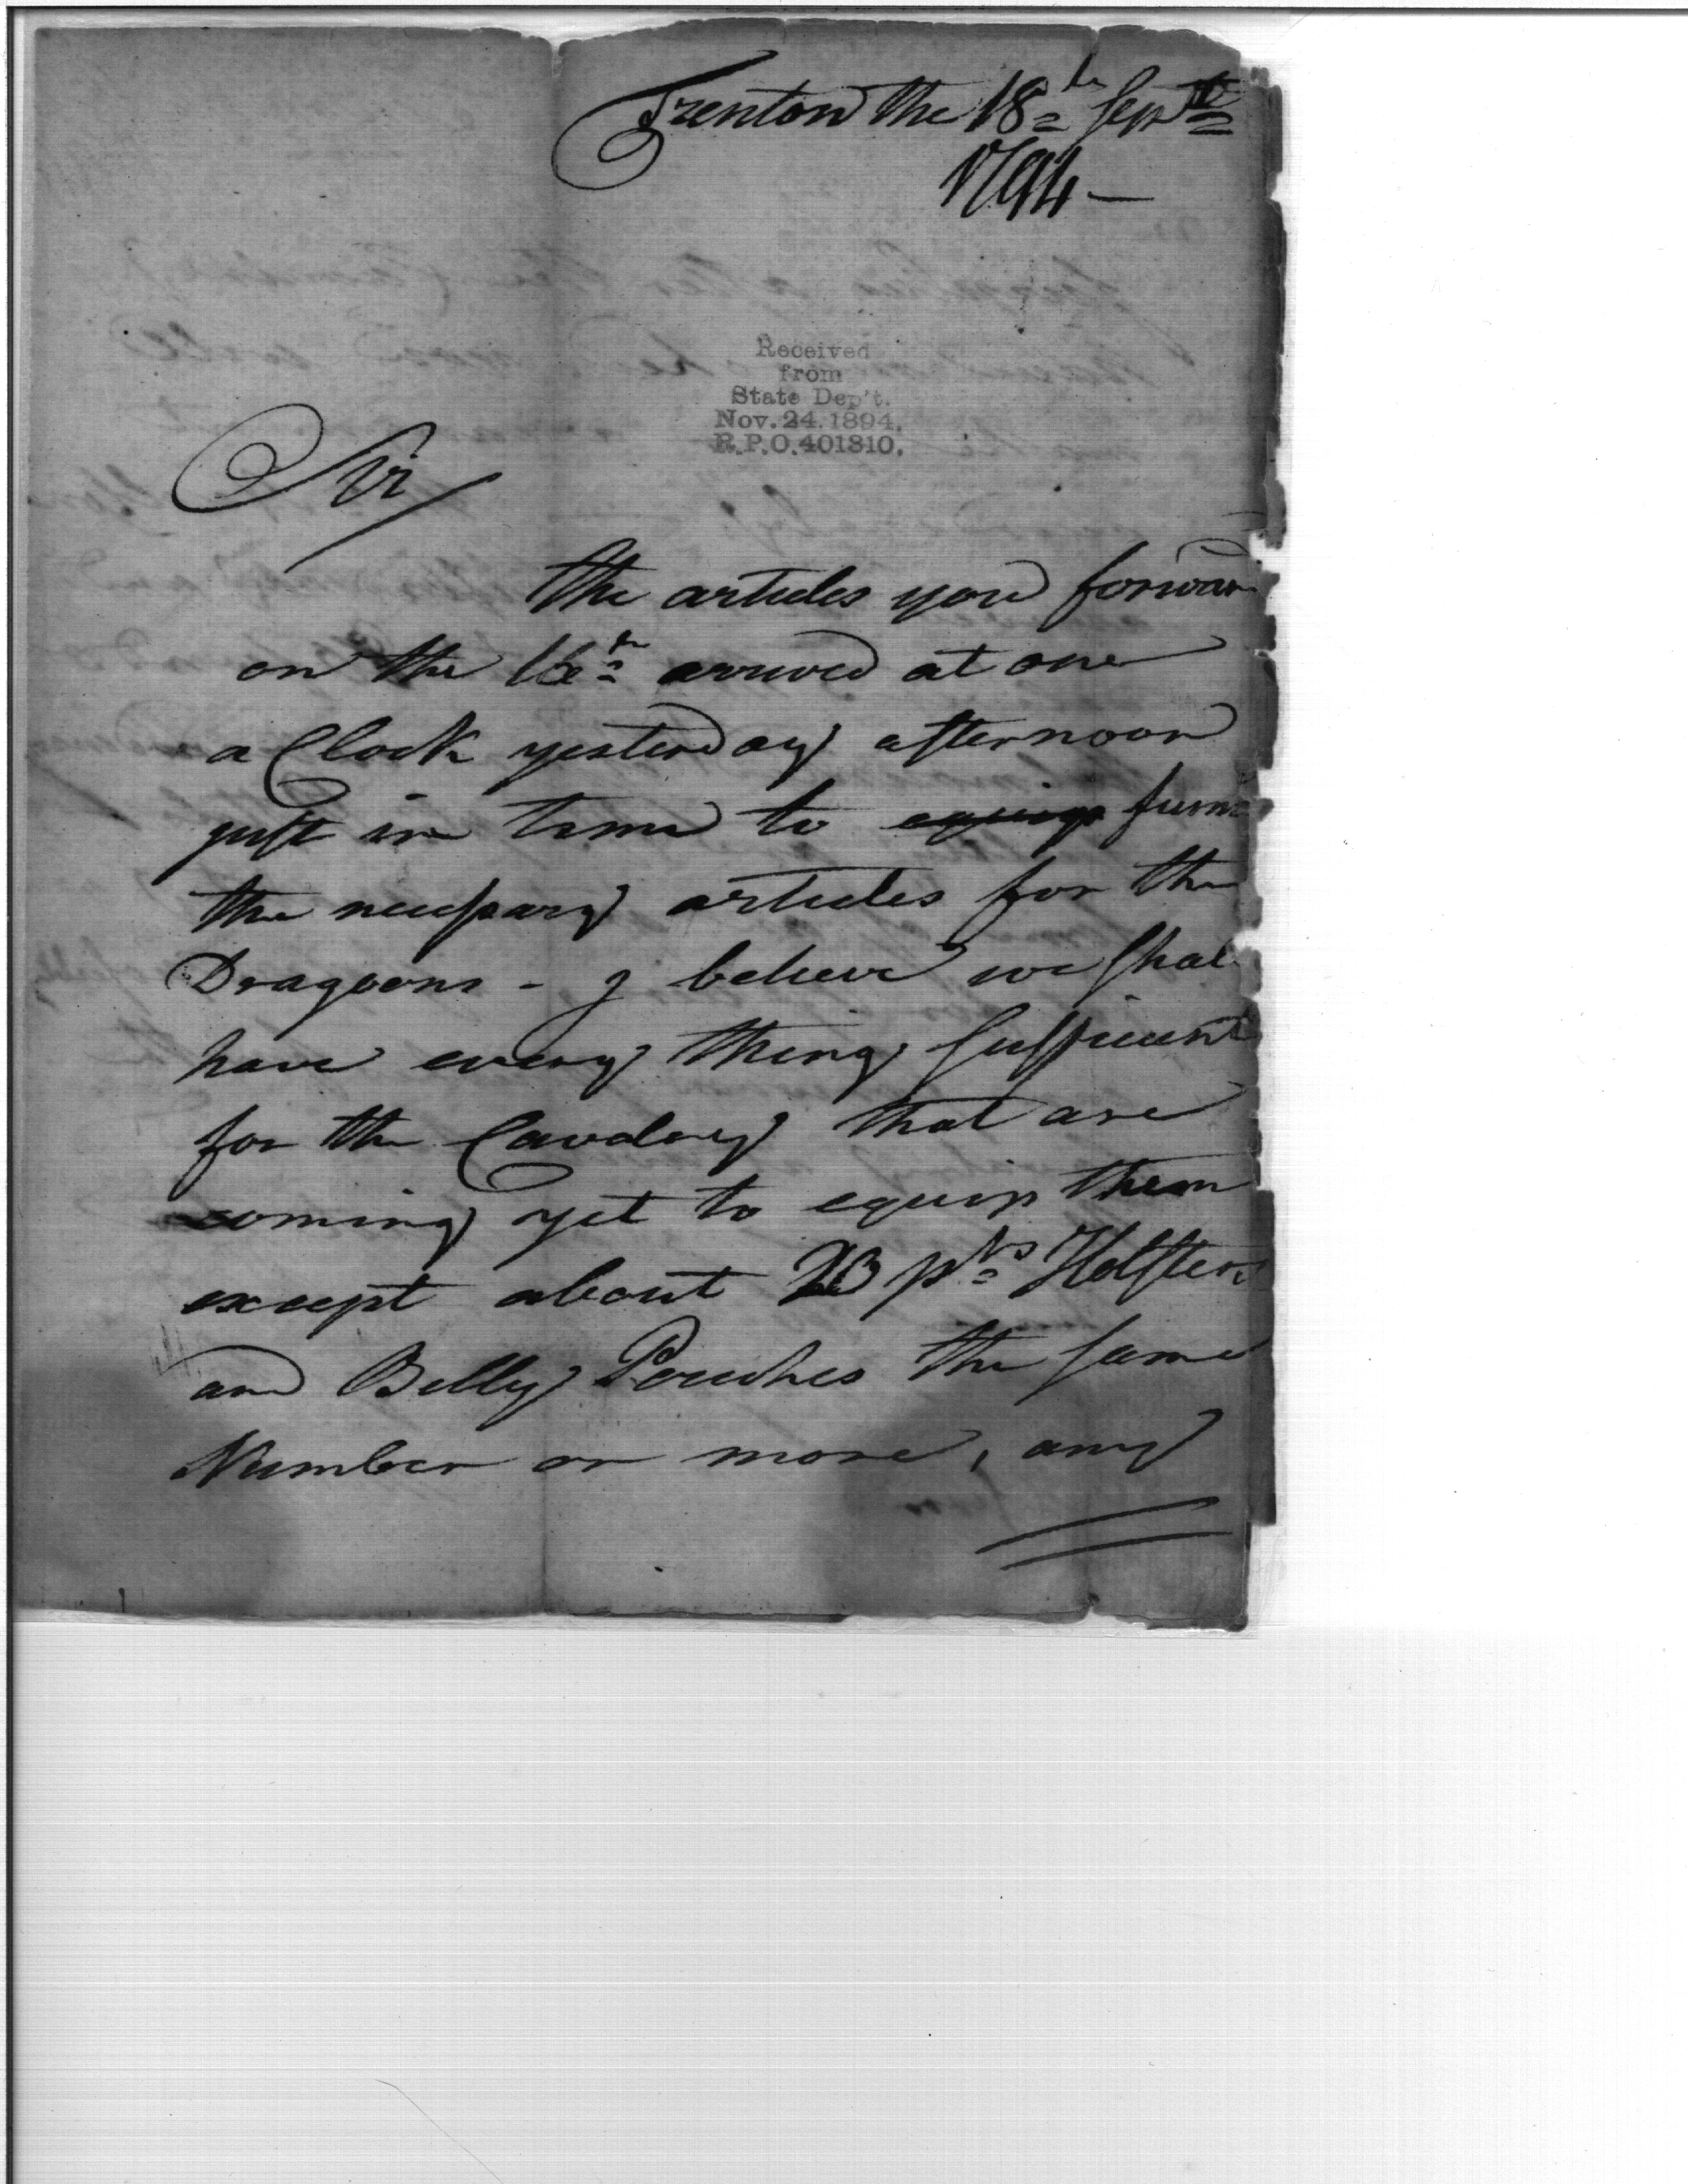 Trenton the 18th Sept
1794 —
Received
from
State Dep't.
Nov. 24. 1894.
R.P.O. 401810.
Sir
the articles you forwar
on the 16th arrived at one
a Clock yesterday afternoon
just in time to equip furn
the necessary articles for the
Dragoons - I believe we shal
have every thing sufficient
for the Cavalrey that are
coming yet to equip them
except about 20 prs Holsters
and Belly Pouches the same
Number or more, any